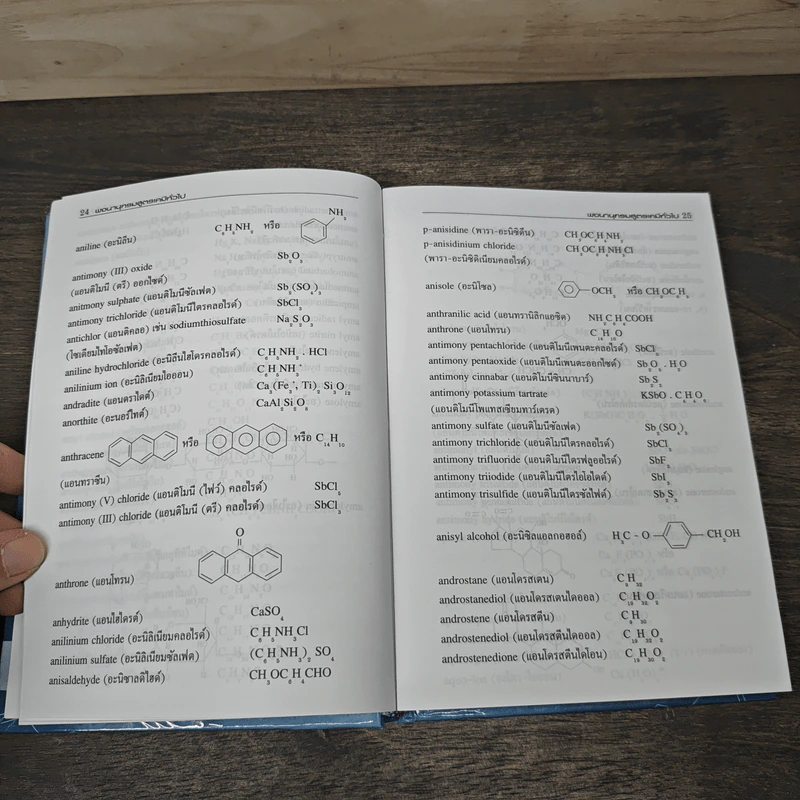 24 พจนานุกรมสูตรเคมีทั่วไป
aniline (อะนิลีน) C₆H₅NH₂ หรือ NH₂
antimony (III) oxide Sb₂O₃
(แอนติโมนี (ตรี) ออกไซด์)
anitmony sulphate (แอนติโมนีซัลเฟต) Sb₂(SO₄)₃
antimony trichloride (แอนติโมนีไตรคลอไรด์) SbCl₃
antichlor (แอนติคลอ) เช่น sodiumthiosulfate Na₂S₂O₃
(โซเดียมไทโอซัลเฟต)
aniline hydrochloride (อะนิลีนไฮโดรคลอไรด์) C₆H₅NH₂ . HCl
anilinium ion (อะนิลิเนียมไอออน) C₆H₅NH₃⁺
andradite (แอนดราไดต์)
anorthite (อะนอร์ไทต์) CaAl₂Si₂O₈
anthracene หรือ หรือ C₁₄H₁₀
(แอนทราซีน)
antimony (V) chloride (แอนติโมนี (ไฟว์) คลอไรด์) SbCl₅
antimony (III) chloride (แอนติโมนี (ตรี) คลอไรด์) SbCl₃
O
anthrone (แอนโทรน)
anhydrite (แอนไฮไดรต์) CaSO₄
anilinium chloride (อะนิลิเนียมคลอไรด์) C₆H₅NH₃Cl
anilinium sulfate (อะนิลิเนียมซัลเฟต) (C₆H₅NH₃)₂ SO₄
anisaldehyde (อะนิซาลดิไฮด์) CH₃OC₆H₄CHO
พจนานุกรมสูตรเคมีทั่วไป 25
p-anisidine (พารา-อะนิซิดีน) CH₃OC₆H₄NH₂
p-anisidinium chloride CH₃OC₆H₄NH₃Cl
(พารา-อะนิซิดิเนียมคลอไรด์)
anisole (อะนิโซล) OCH₃ หรือ CH₃OC₆H₅
anthranilic acid (แอนทรานิลิกแอซิด) NH₂C₆H₄COOH
anthrone (แอนโทรน) C₁₄H₁₀O
antimony pentachloride (แอนติโมนีเพนตะคลอไรด์) SbCl₅
antimony pentaoxide (แอนติโมนีเพนตะออกไซด์)
antimony cinnabar (แอนติโมนีซินนาบาร์)
antimony potassium tartrate
(แอนติโมนีโพแทสเซียมทาร์เตรต)
antimony sulfate (แอนติโมนีซัลเฟต) Sb₂(SO₄)₃
antimony trichloride (แอนติโมนีไตรคลอไรด์) SbCl₃
antimony trifluoride (แอนติโมนีไตรฟลูออไรด์) SbF₃
antimony triiodide (แอนติโมนีไตรไอโอไดด์) SbI₃
antimony trisulfide (แอนติโมนีไตรซัลไฟด์) Sb₂S₃
anisyl alcohol (อะนิซิลแอลกอฮอล์) H₃C - O CH₂OH
androstane (แอนโดรสเตน) C₁₉H₃₂
androstanediol (แอนโดรสเตนไดออล) C₁₉H₃₂O₂
androstene (แอนโดรสตีน) C₁₉H₃₀
androstenediol (แอนโดรสตีนไดออล) C₁₉H₃₀O₂
androstenedione (แอนโดรสตีนไดโอน) C₁₉H₃₀O₂